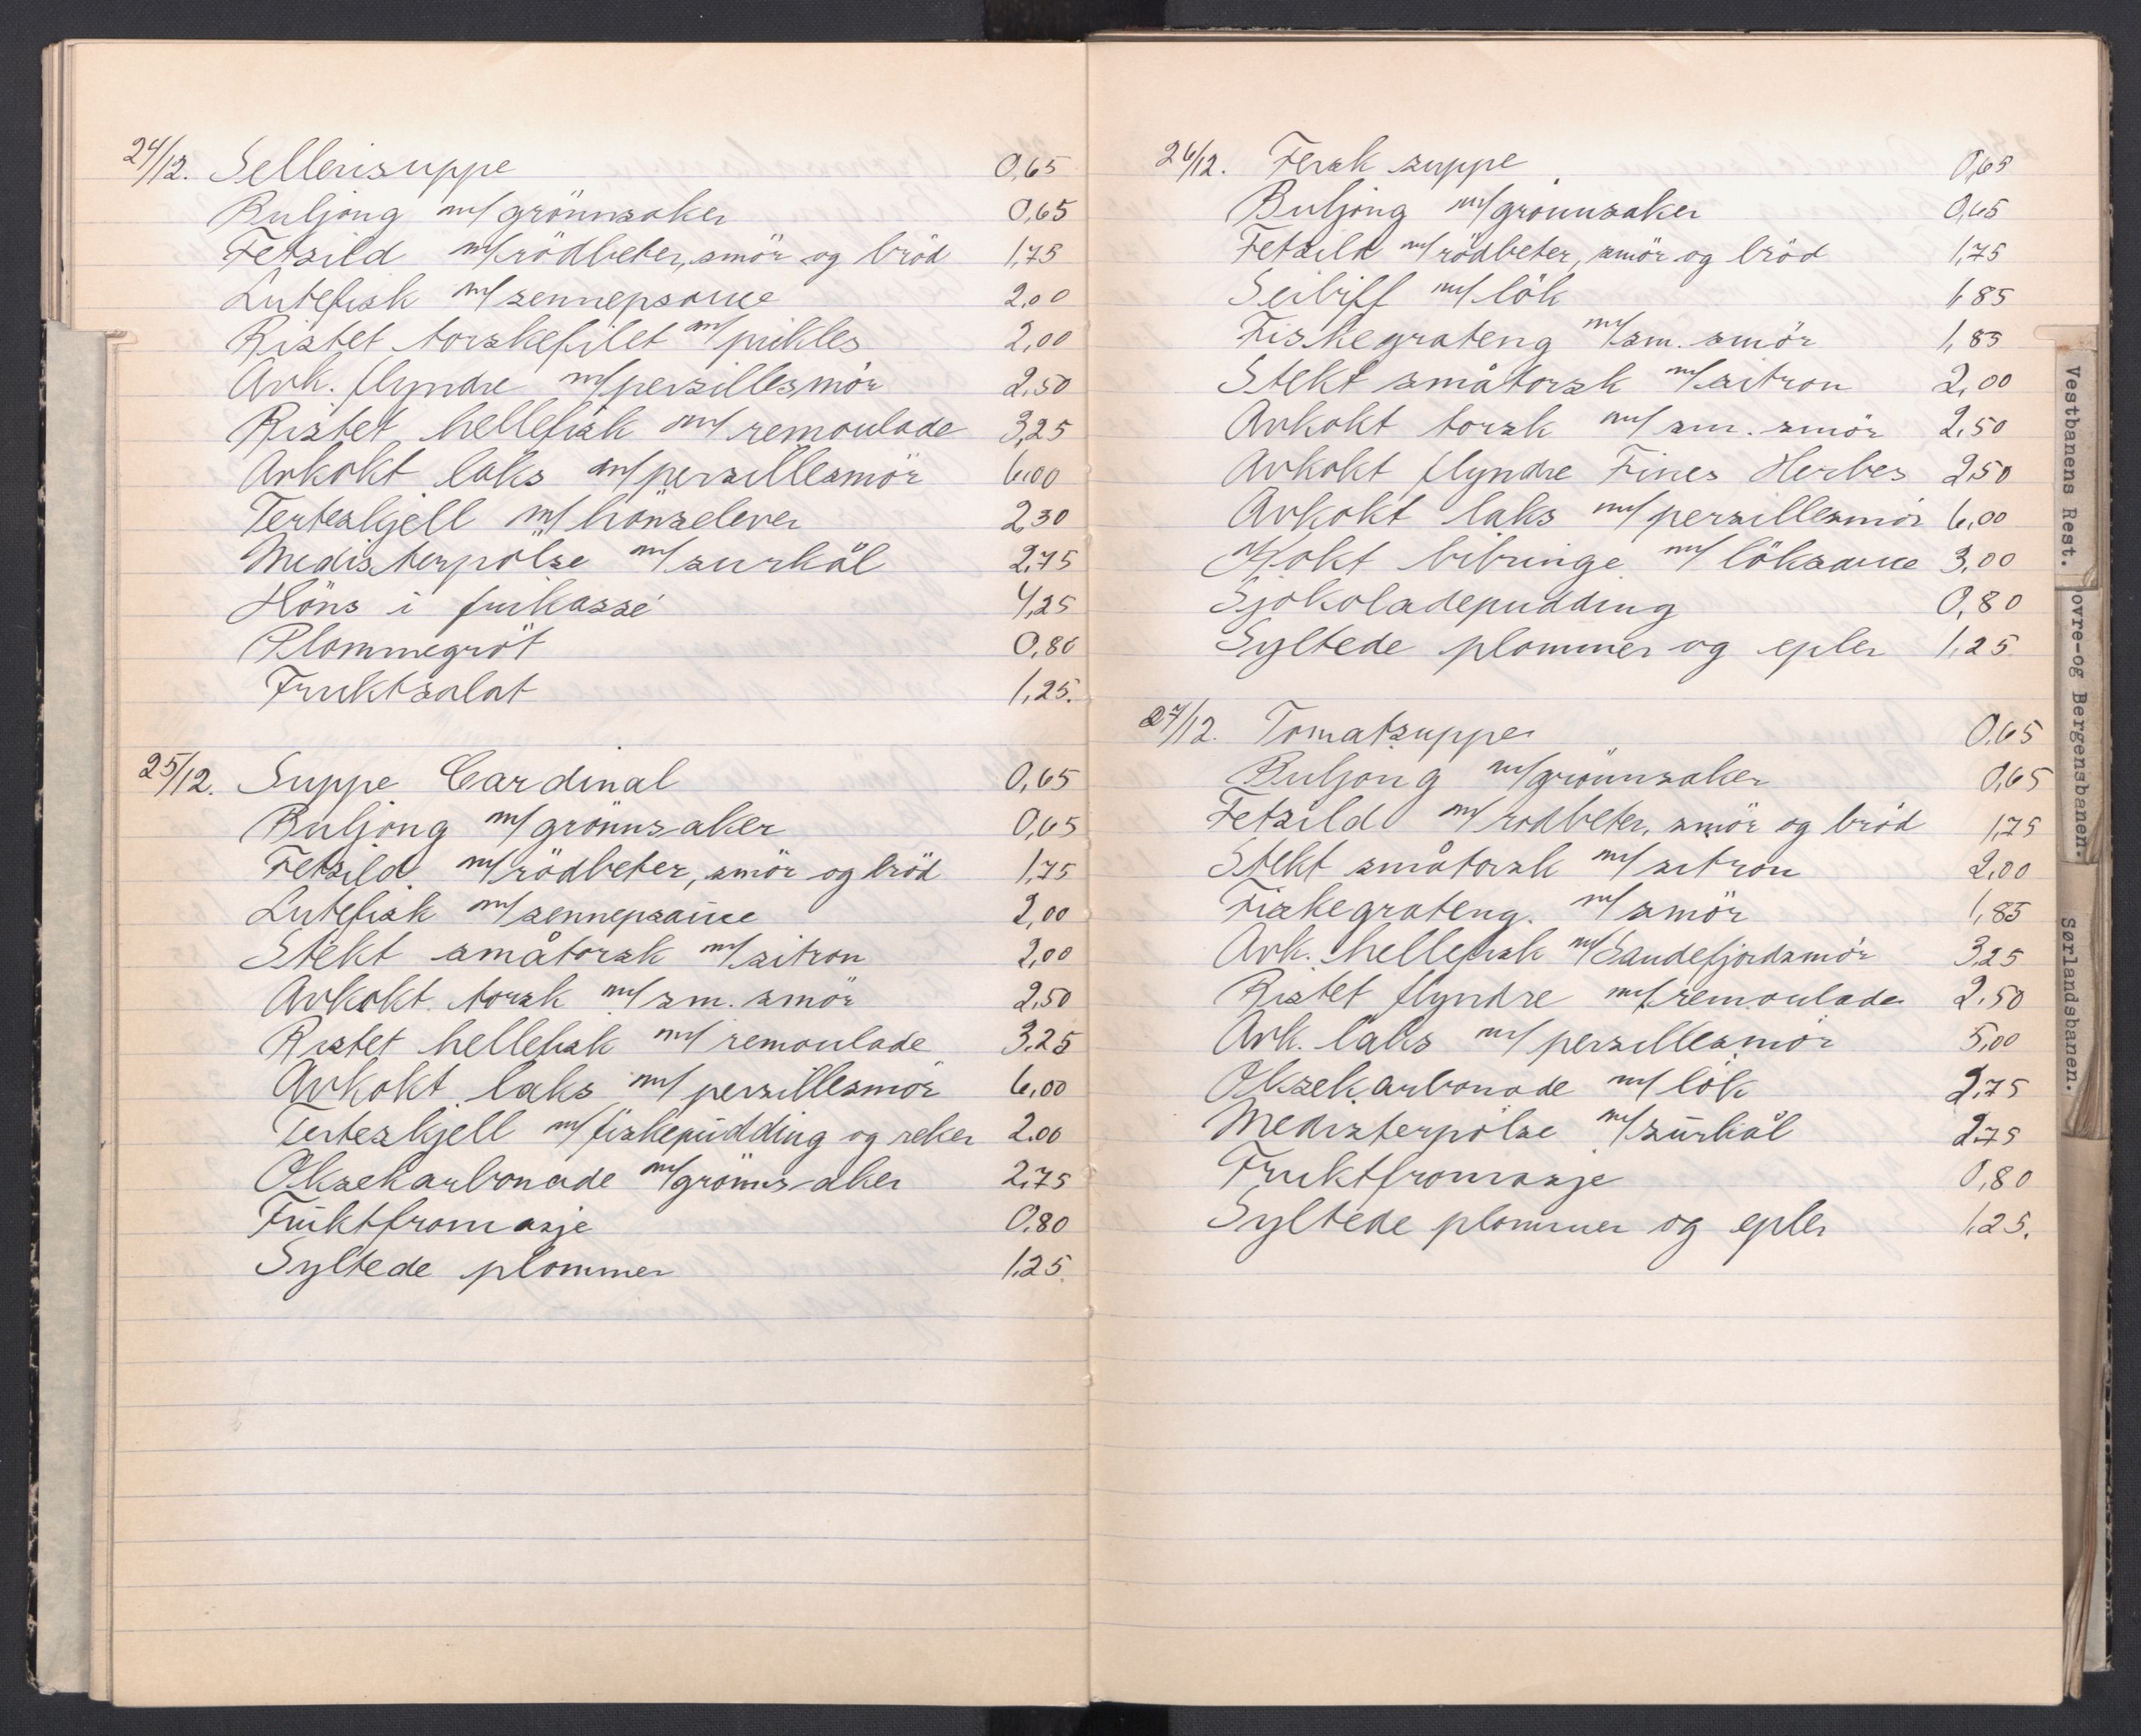 24/12. Sellerisuppe 0,65
Buljong m/grönnsaker 0,65
Fetsild m/rödbeter, smör og bröd 1,75
Lutefisk m/sennepsaue 2,00
Ristet torskefilet m/pickles 2,00
Avk. flyndre m/persillesmör 2,50
Ristet hellefisk m/remoulade 3,25
Avkokt laks m/persillesmör 6,00
Terteskjell m/hönselever 2,30
Medisterpölse m/surkål 2,75
Höns i frikassé 4,25
Plommegröt 0,80
Fruktsalat 1,25.
25/12. Suppe Cardinal 0,65
Buljong m/grönnsaker 0,65
Fetsild m/rödbeter, smör og bröd 1,75
Lutefisk m/sennepsaue 2,00
Stekt småtorsk m/sitron 2,00
Avkokt torsk m/sm. smör 2,50
Ristet hellefisk m/remoulade 3,25
Avkokt laks m/persillesmör 6,00
Terteskjell m/fiskepudding og reker 2.00
Oksekarbonade m/grönnsaker 2,75
Fruktfromasje 0,80
Syltede plommer 1,25.
26/12. Fersk suppe 0,65
Buljong m/grönnsaker 0,65
Fetsild m/rödbeter, smör og bröd 1,75
Seibiff m/lök 1,85
Fiskegrateng m/sm. smör 1,85
Stekt småtorsk m/sitron 2,00
Avkokt torsk m/sm. smör 2,50
Avkokt flyndre Fines Herbes 2,50
Avkokt laks m/persillesmör 6,00
Kokt bibringe m/löksaue 3,00
Sjokoladepudding 0,80
Syltede plommer og epler 1,25.
27/12. Tomatsuppe 0,65
Buljong m/grönnsaker 0,65
Fetsild m/rödbeter, smör og bröd 1,75
Stekt småtorsk m/sitron 2,00
Fiskegrateng. m/smör 1,85
Avk. hellefisk m/Sandefjordsmör 3,25
Ristet flyndre m/remoulade 2.50
Avk. laks m/persillesmör 5,00
Oksekarbonade m/lök 2,75
Medisterpölse m/surkål 2,75
Fruktfromasje 0,80
Syltede plommer og epler 1,25.
Vestbanens Rest.
ovre-og Bergensbanen.
Sørlandsbanen.